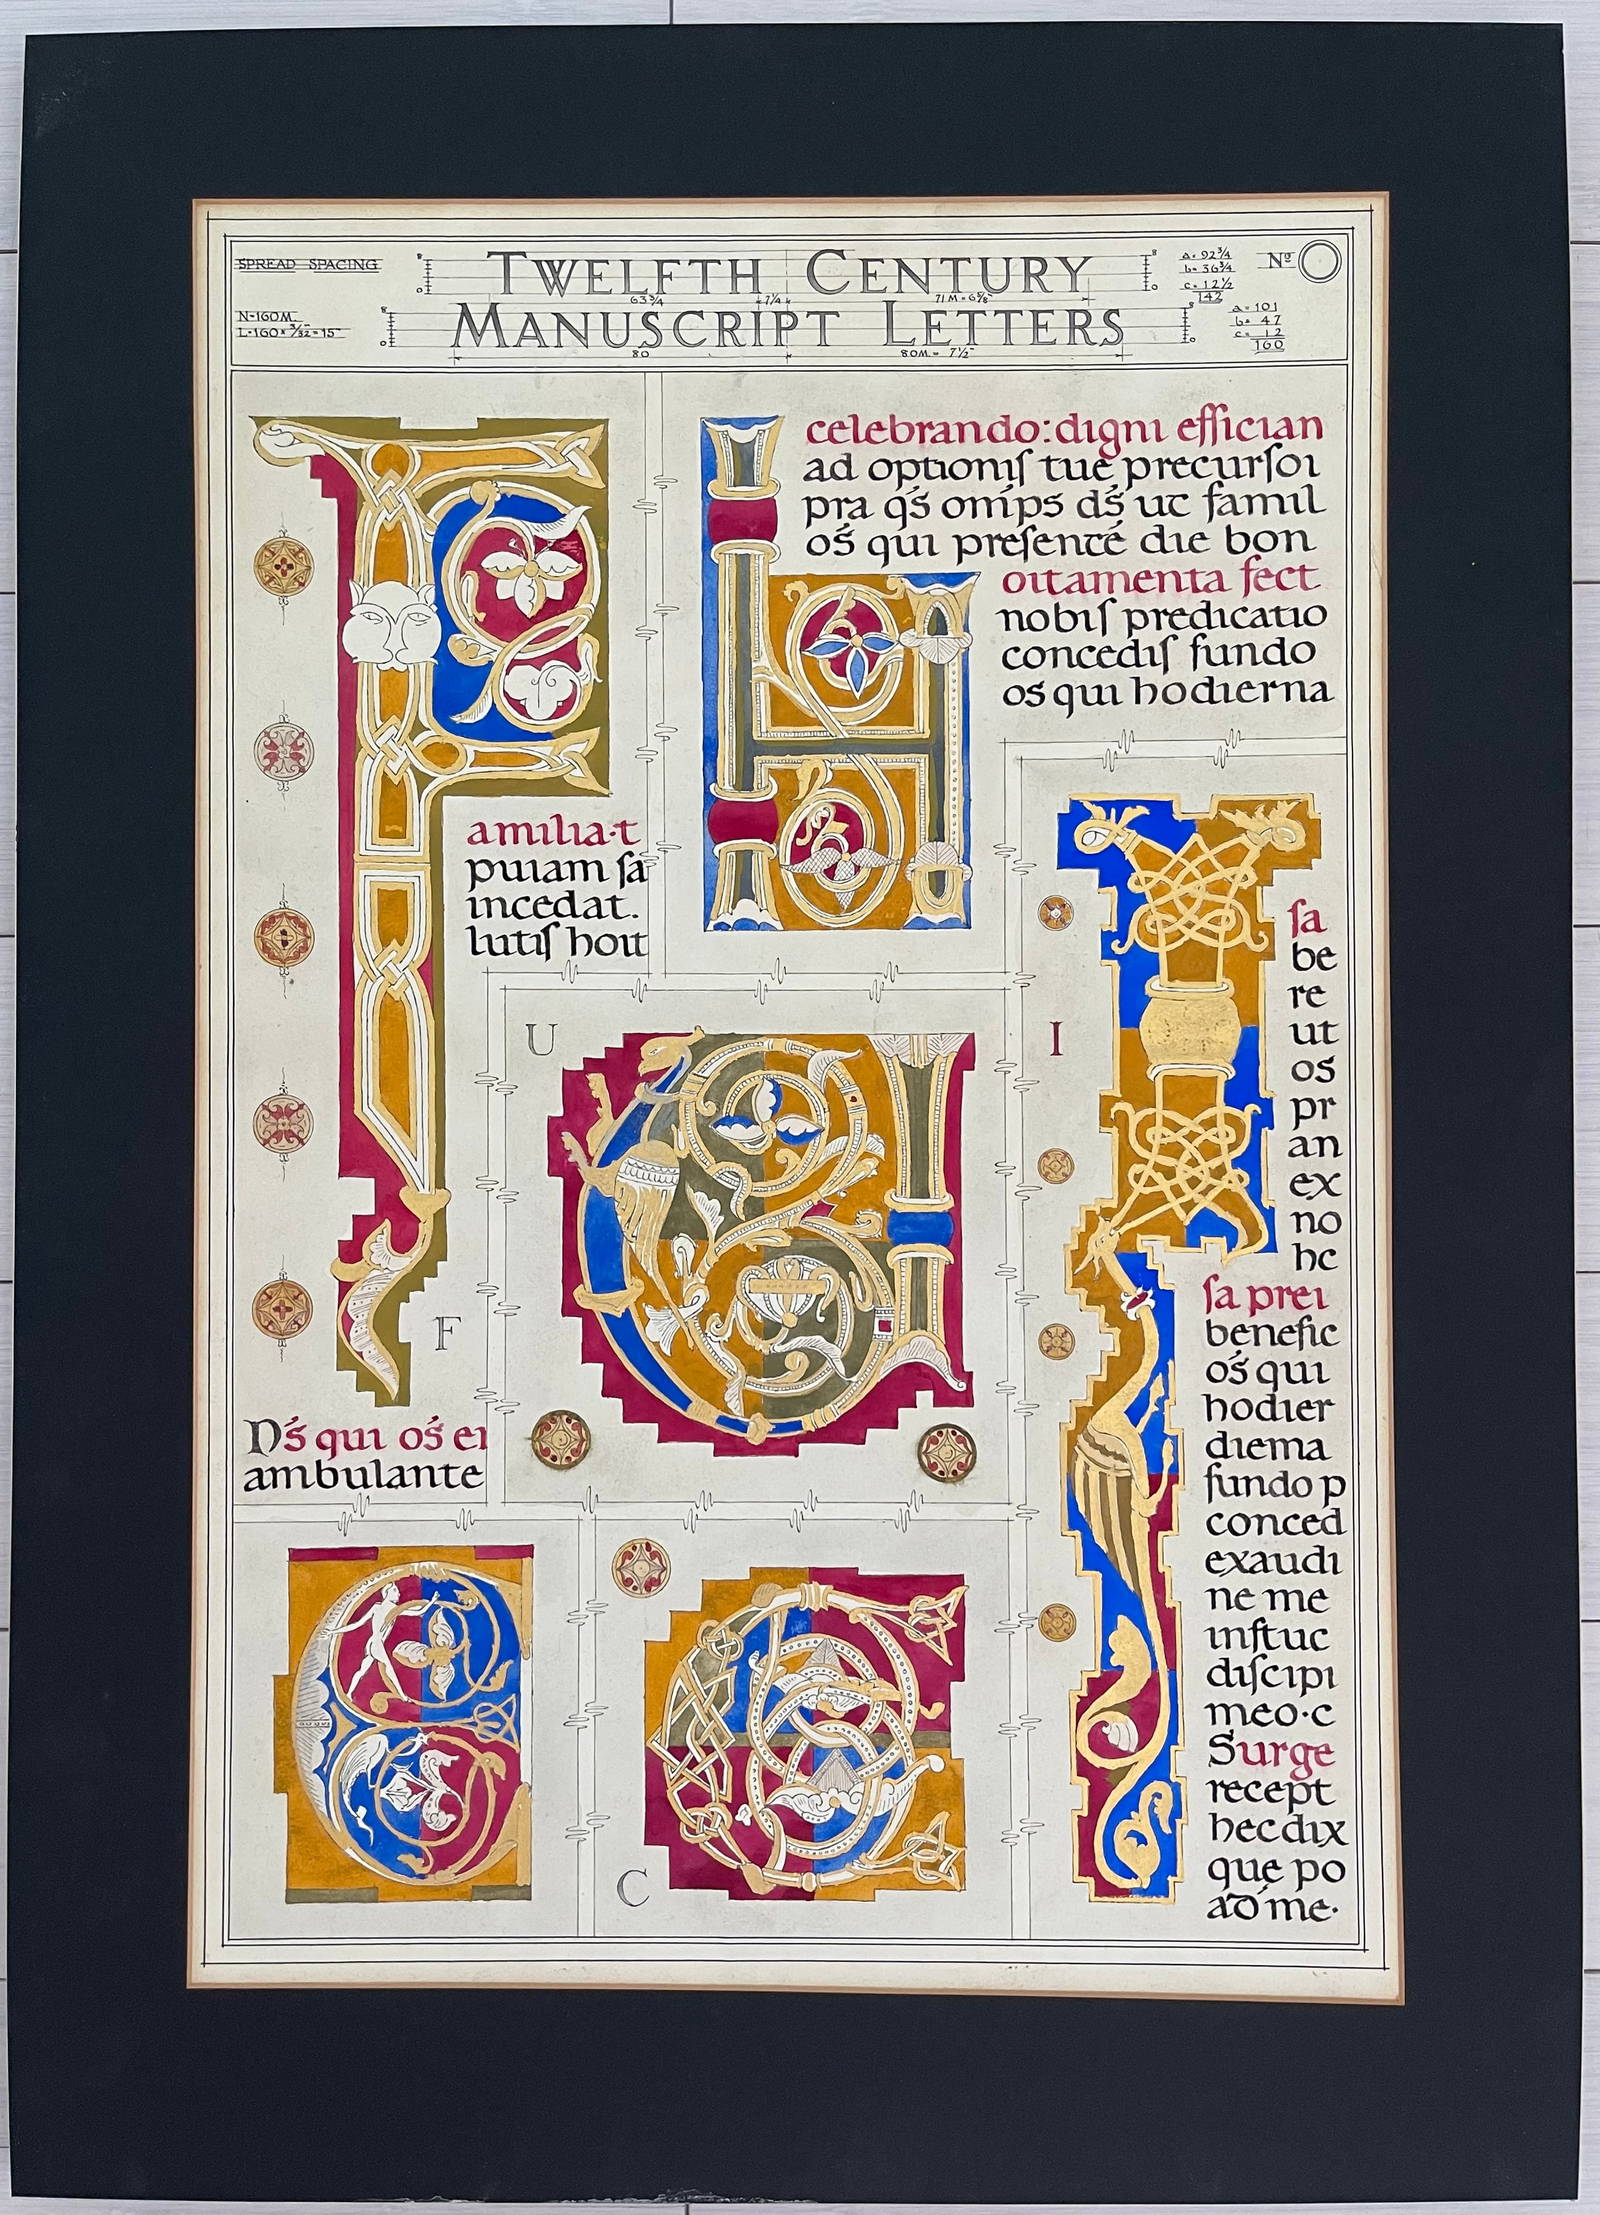 SPREAD SPACING
TWELFTH CENTURY
MANUSCRIPT LETTERS
8
0
63 3/4
7 1/4
71 M = 6 5/8"
8
0
a = 92 3/4
b = 36 3/4
c = 12 1/2
142
Nº
N=160M
L=160 x 3/32 = 15"
8
0
80
80M = 7 1/2"
8
0
a = 101
b = 47
c = 12
160
celebrando: digni effician
ad optioniſ tue precurſoi
pra qś omíps dś ut famil
oś qui preſenté die bon
oitamenta fect
nobiſ predicatio
concediſ fundo
os qui hodierna
amilia·t
puiam ſa
incedat.
lutiſ hoit
F
Dś qui oś ei
ambulante
U
I
ſa
be
re
ut
os
pr
an
ex
no
hc
ſa prei
benefic
oś qui
hodier
diema
fundo p
conced
exaudi
ne me
inſtuc
diſcipi
meo·c
Surge
recept
hec dix
que po
ad me·
C